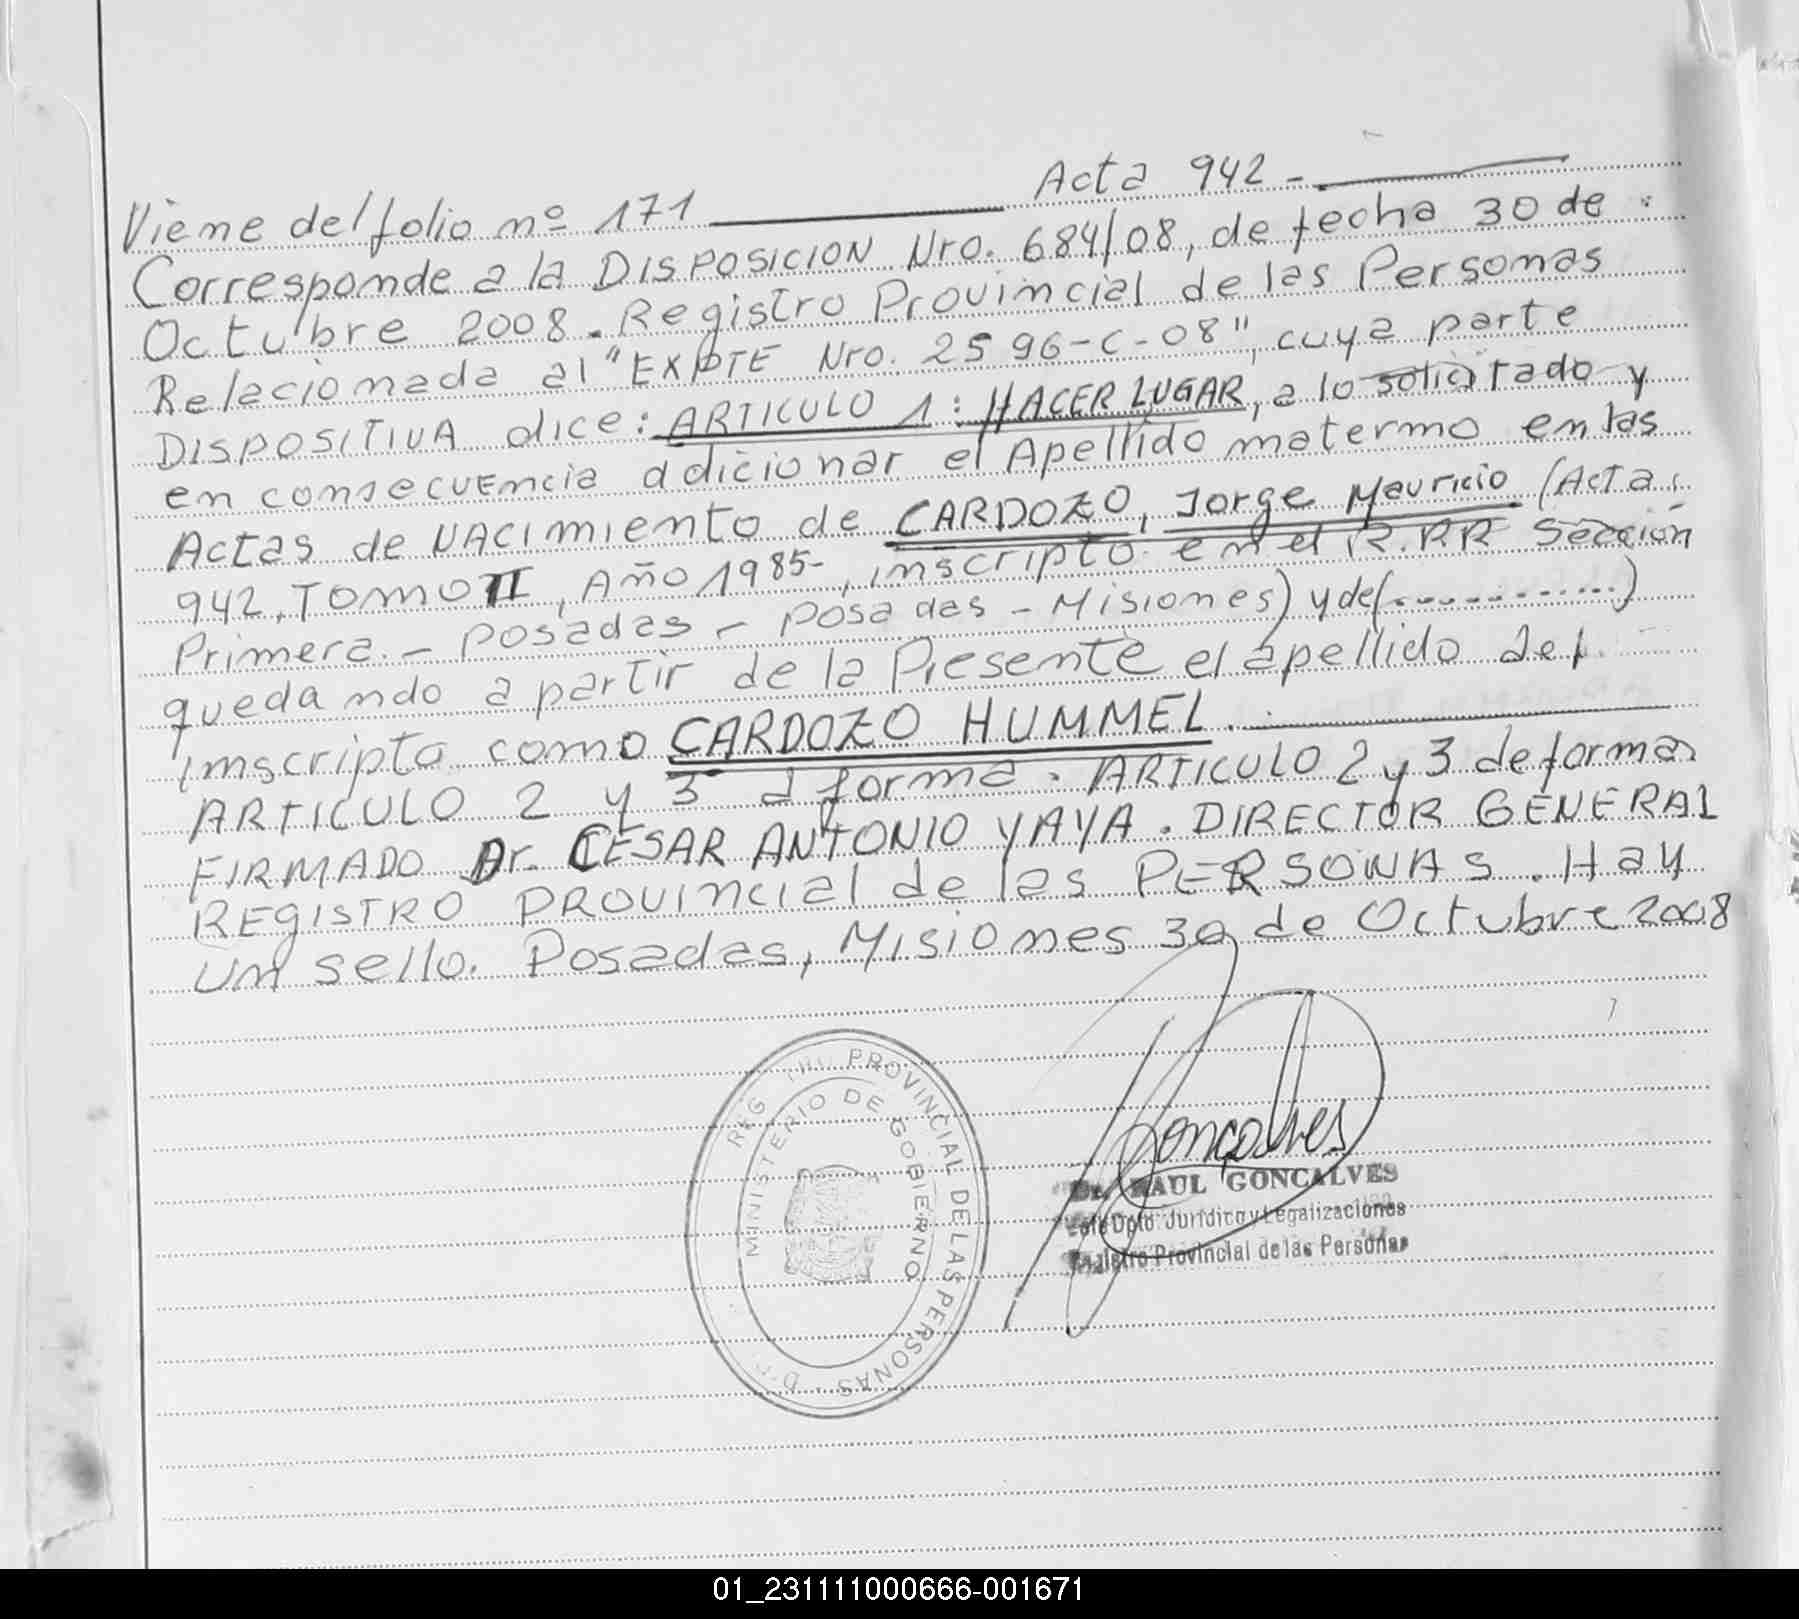 Viene del folio nº 171 Acta 942 -
Corresponde a la DISPOSICION Nro. 684/08, de fecha 30 de
Octubre 2008. Registro Provincial de las Personas
Relacionada al "EXPTE Nro. 2596-C-08", cuya parte
DISPOSITIVA dice: ARTICULO 1: HACER LUGAR, a lo solicitado y
en consecuencia adicionar el Apellido materno en las
Actas de NACimiento de CARDOZO, Jorge Mauricio (Acta
942, TOMO II, Año 1985-, inscripto en el R.PP Sección
Primera. - Posadas - Posadas - Misiones) y de (............)
quedando a partir de la Presente el apellido del
inscripto como CARDOZO HUMMEL.
ARTICULO 2 y 3 d forma. ARTICULO 2 y 3 de forma
FIRMADO Dr. CESAR ANTONIO YAYA. DIRECTOR GENERAL
REGISTRO PROVINCIAL de las PERSONAS. Hay
Un sello. Posadas, Misiones 30 de Octubre 2008
PROVINCIAL DE LAS PERSONAS
MINISTERIO DE GOBIERNO
Goncalves
Dr. RAUL GONCALVES
Jefe Dpto. Jurídico y Legalizaciones
Registro Provincial de las Personas
01_231111000666-001671